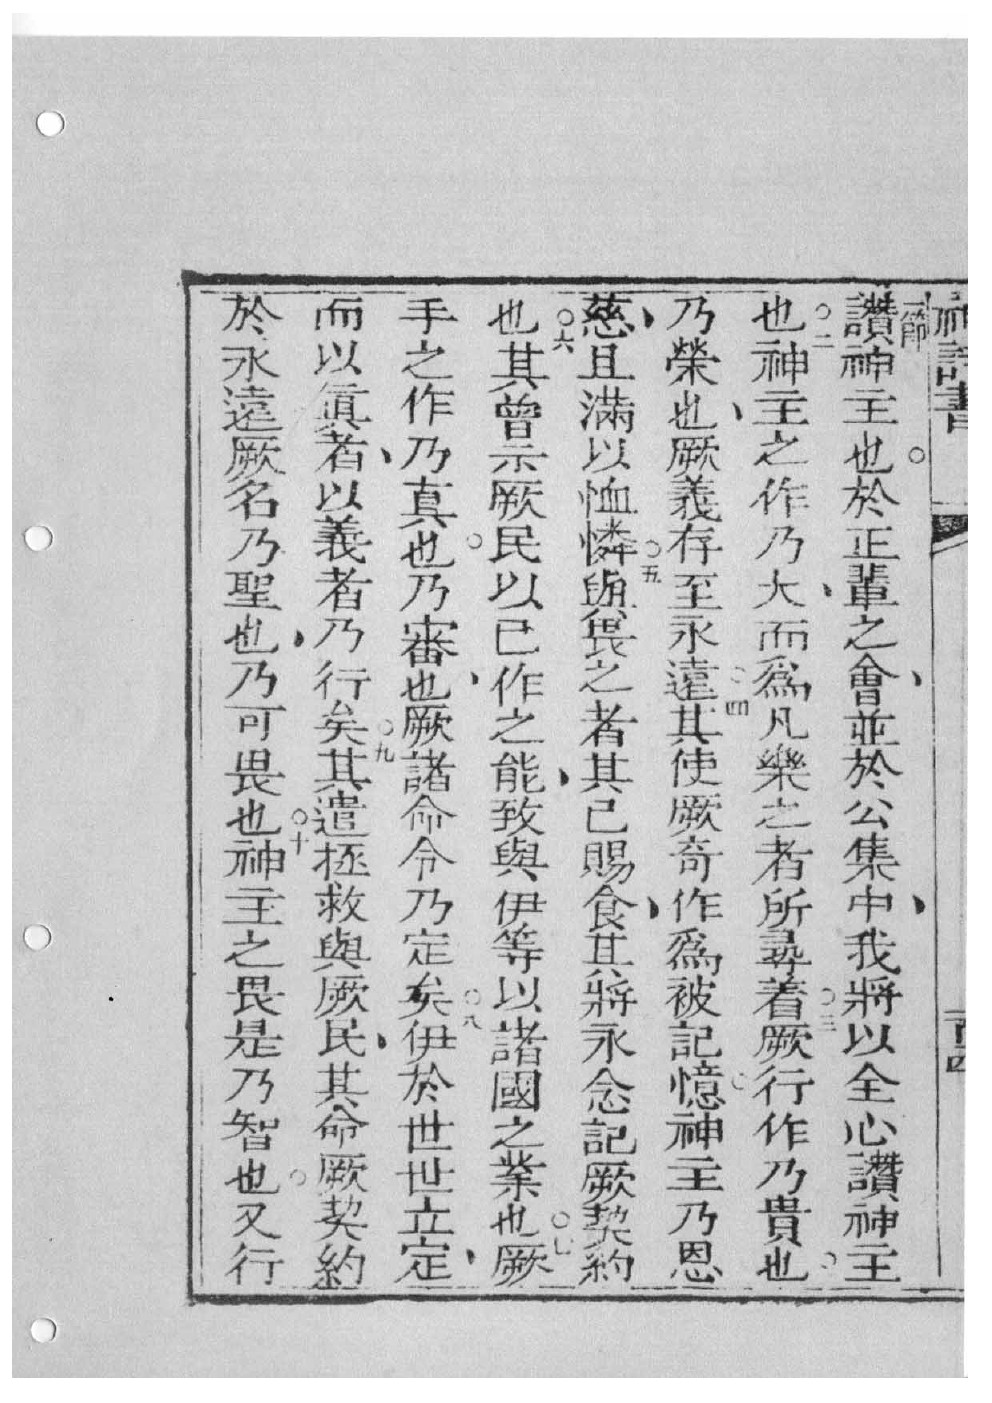 神詩書 一百四
節
讚神主也。於正輩之會、並於公集中、我將以全心讚神主
也○二神主之作乃大、而爲凡樂之者所尋着○三厥行作乃貴
也○
乃榮也、厥義存至永遠○四其使厥奇作爲被記憶○神主乃恩
慈、且滿以恤憐○五與畏之者其已賜食、其將永念記厥契約
也○六其曾示厥民以已作之能、致與伊等以諸國之業也○七厥
手之作乃真也○乃審也、厥諸命令乃定矣○八伊於世世立定、
而以眞者、以義者乃行矣○九其遣拯救與厥民、其命厥契約
於永遠厥名乃聖也、乃可畏也○十神主之畏是乃智也○又行